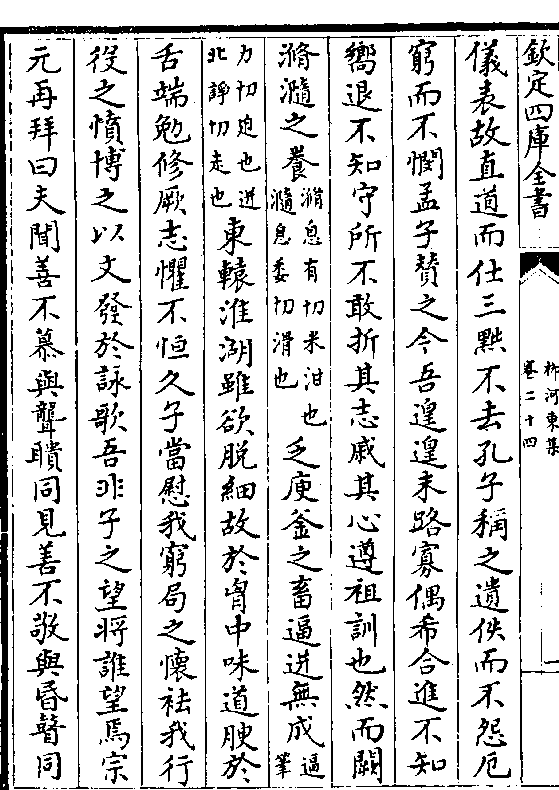 欽定四庫全書
柳河東集
卷二十四
一
儀表故直道而仕三黜不去孔子稱之遺佚而不怨厄
窮而不憫孟子贊之今吾遑遑末路寡偶希合進不知
嚮退不知守所不敢折其志戚其心遵祖訓也然而闕
滫瀡之養滫息有切米泔也瀡息委切滑也乏庾釜之畜逼迸無成逼筆
力切迫也迸北諍切走也東轅淮湖雖欲脫細故於胷中味道腴於
舌端勉修厥志懼不恒久子當慰我窮局之懷祛我行
役之憤博之以文發於詠歌吾非子之望將誰望焉宗
元再拜曰夫聞善不慕與聾聵同見善不敬與昏瞽同